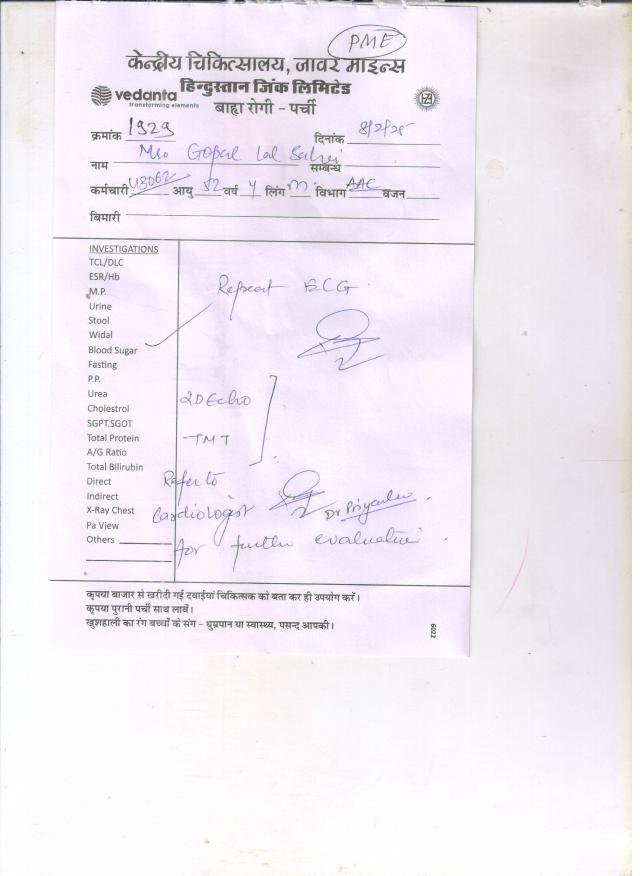 PME
केन्द्रीय चिकित्सालय, जावर माइन्स
हिन्दुस्तान जिंक लिमिटेड
vedanta
transforming elements
बाह्य रोगी - पर्ची
क्रमांक 1929 दिनांक 8/2/25
नाम Gopal Lal सम्बन्ध
कर्मचारी आयु 52 वर्ष Y लिंग M विभाग AAC वजन
बिमारी
INVESTIGATIONS
TCL/DLC
ESR/Hb
M.P.
Repeat ECG.
Urine
Stool
Widal
Blood Sugar
Fasting
P.P.
Urea
2D Echo
Cholestrol
SGPT.SGOT
Total Protein
TMT
A/G Ratio
Total Bilirubin
Direct
Refer to
Indirect
X-Ray Chest
Cardiologist Dr
Pa View
Others
for further evaluation.
कृपया बाजार से खरीदी गई दवाईयां चिकित्सक को बता कर ही उपयोग करें।
कृपया पुरानी पर्ची साथ लावें।
खुशहाली का रंग बच्चों के संग - धुम्रपान या स्वास्थ्य, पसन्द आपकी।
6022